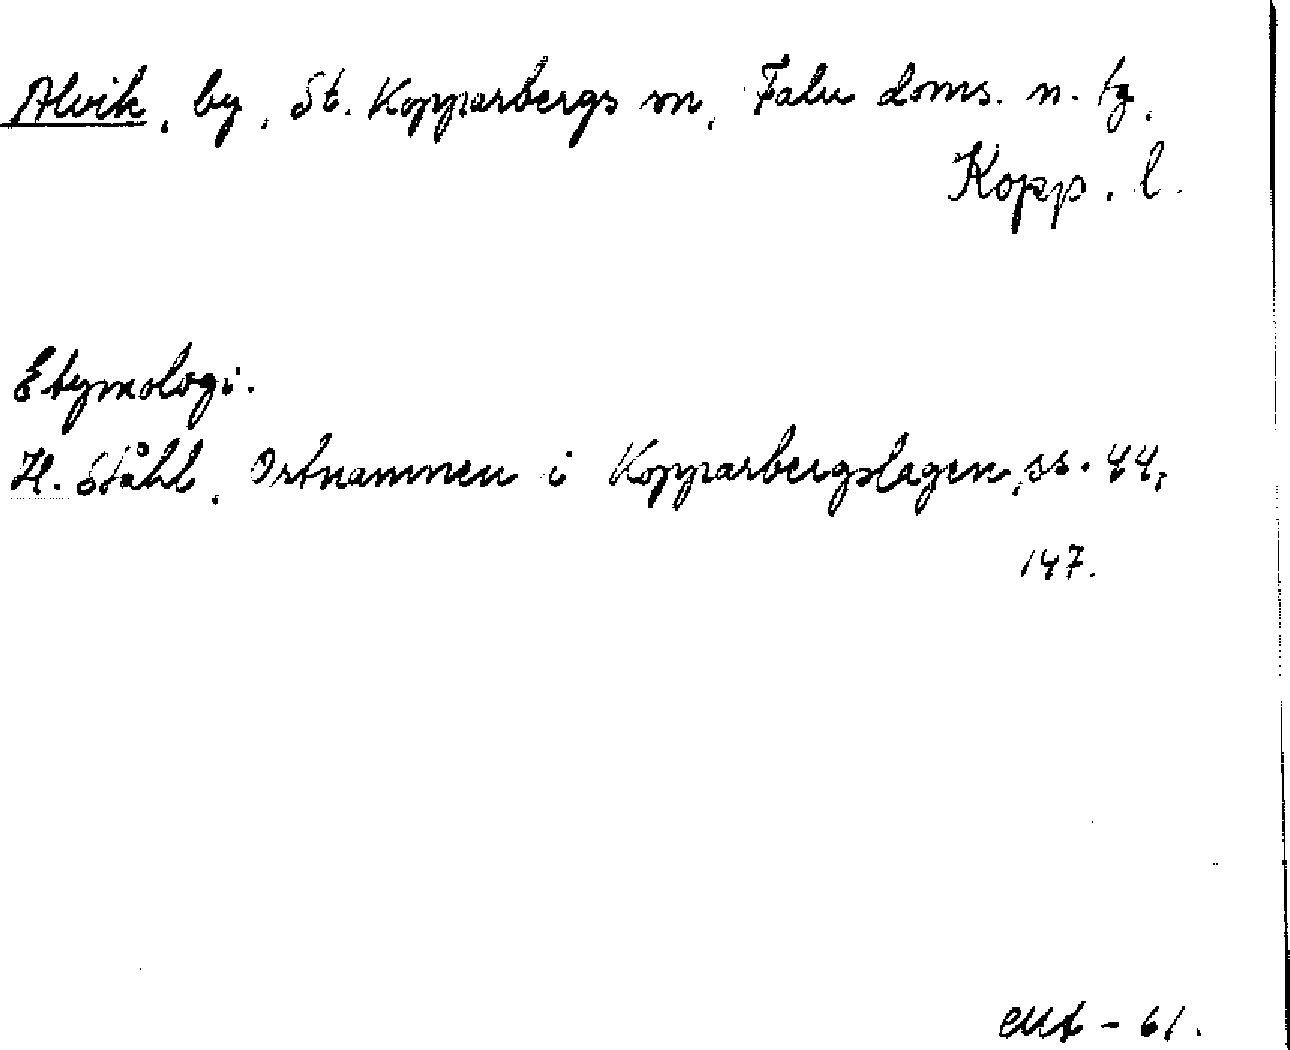 Alvik, by, St. Kopparbergs sn, Falu doms. n. tg,
Kopp. l.
Etymologi.
H. Ståhl, Ortnamnen i Kopparbergslagen, ss. 44,
147.
- 61.